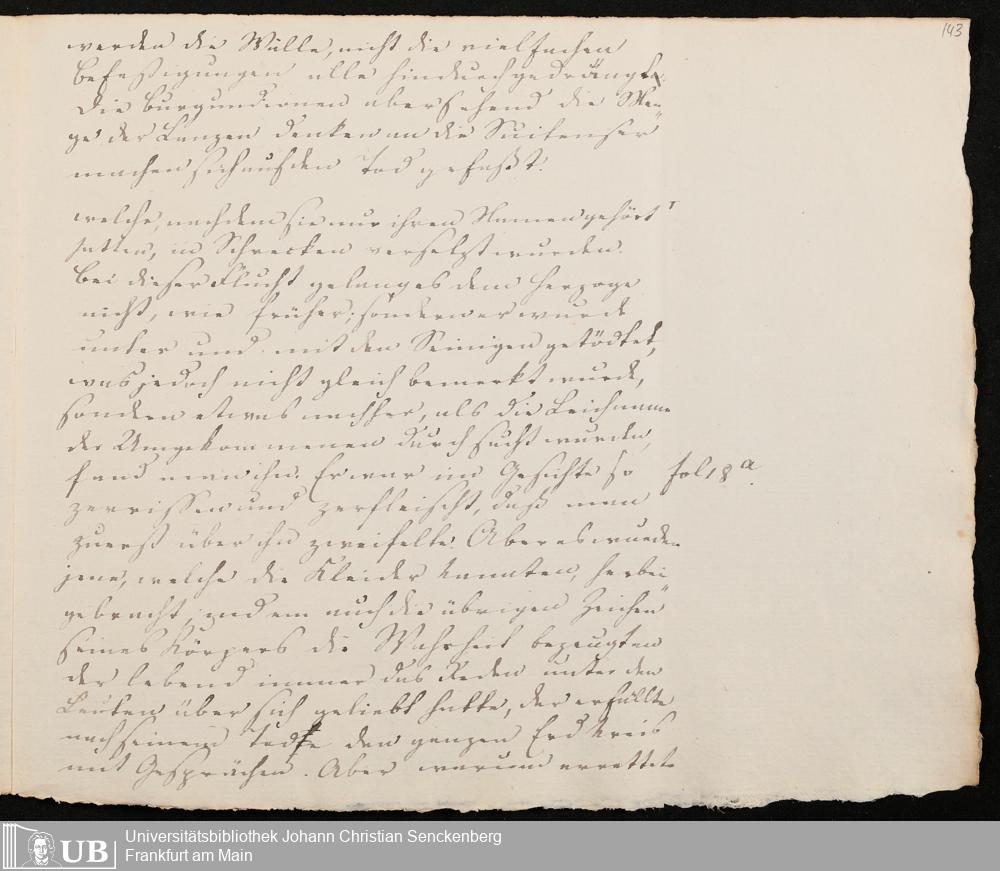 143
werden die Wälle, nicht die vielfachen
Befestigungen alle hindurchgedrängt
Die Burgundionen übersehend die Men-
ge der Lanzen denken an die Suitenser
machen sich auf den Tod gefaßt.
welche, nachdem sie nur ihren Namen gehört
hatten, in Schrecken versetzt wurden.
Bei dieser Flucht gelang es dem Herzoge
nicht, wie früher, sondern er wurde
unter und mit den Seinigen getödtet,
was jedoch nicht gleich bemerkt wurde,
sondern etwas nachher, als die Leichname
der Umgekommenen durchsucht wurden,
fand man ihn. Er war im Gesichte so
fol 18 a.
zerrissen und zerfleischt, daß man
zuerst über ihn zweifelte. Aber es wurden
jene, welche die Kleider kannten, herbei
gebracht, indem auch die übrigen Zeichen
seines Körpers die Wahrheit bezeugten
der lebend immer das Reden unter den
Leuten über sich geliebt hatte, der erfüllte
nach seinem Tode den ganzen Erdkreis
mit Gesprächen. Aber warum errettete
UB
Universitätsbibliothek Johann Christian Senckenberg
Frankfurt am Main